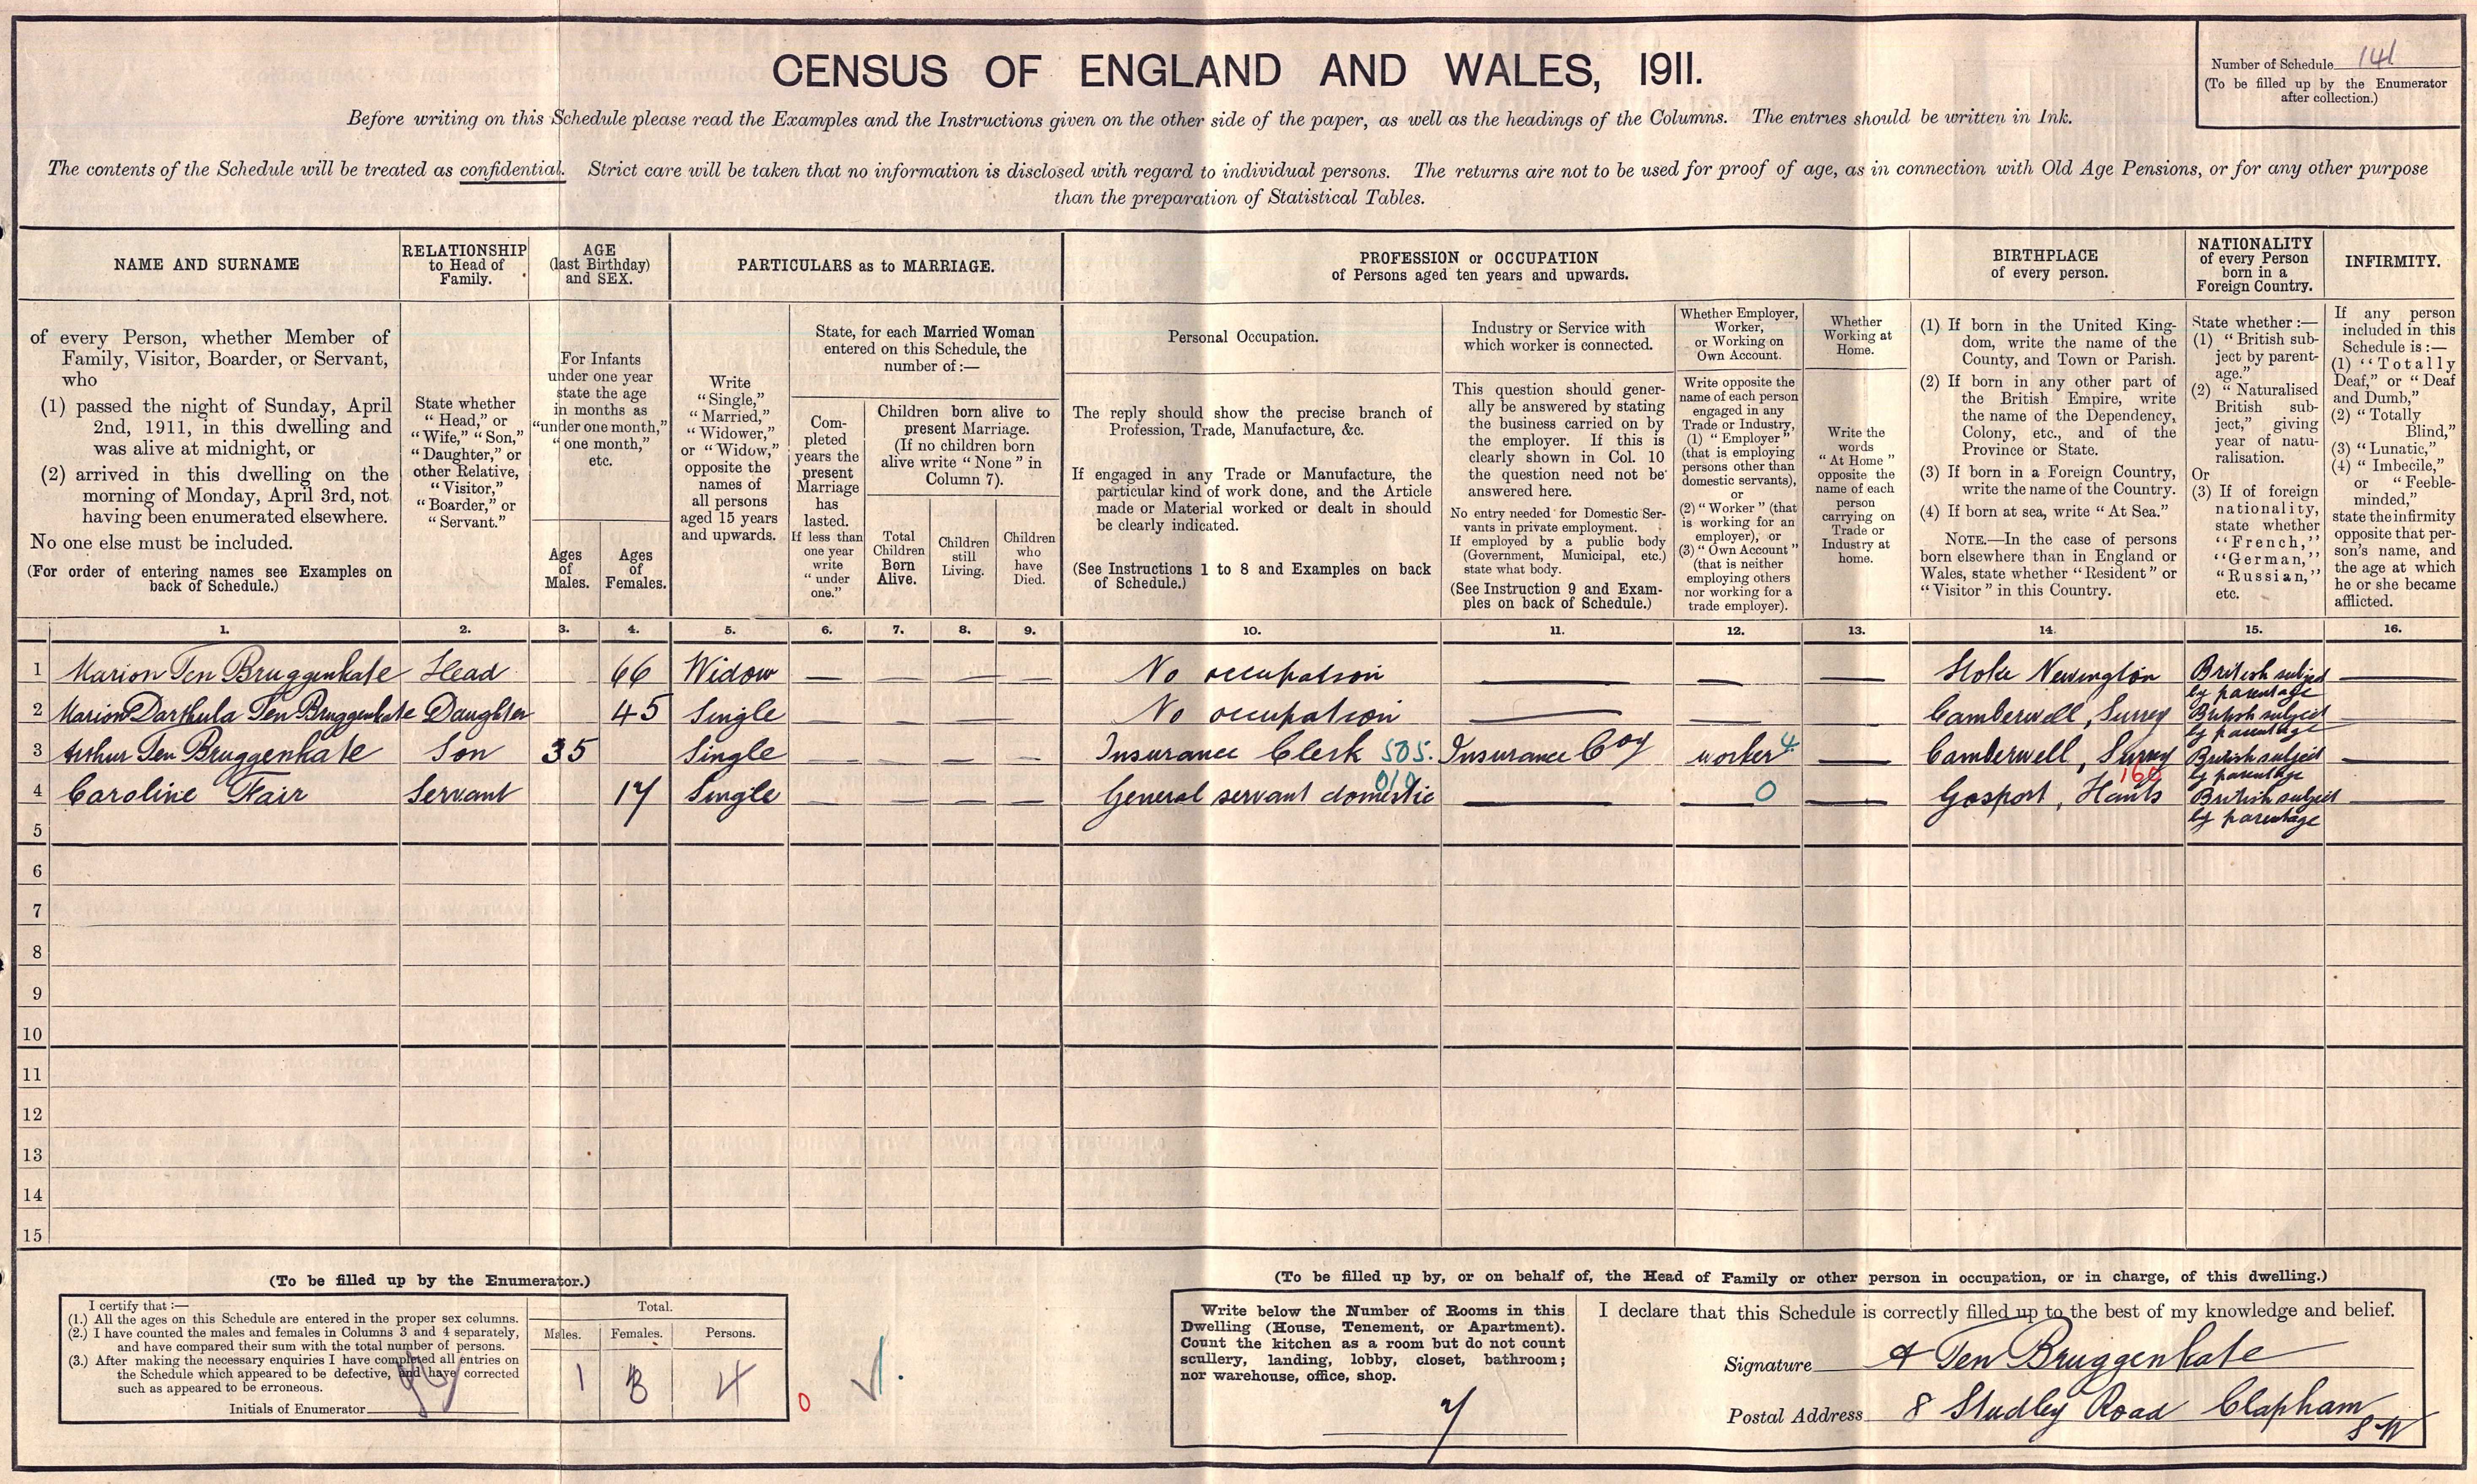 CENSUS OF ENGLAND AND WALES, 1911.
Number of Schedule 141
(To be filled up by the Enumerator
after collection.)
Before writing on this Schedule please read the Examples and the Instructions given on the other side of the paper, as well as the headings of the Columns. The entries should be written in Ink.
The contents of the Schedule will be treated as confidential. Strict care will be taken that no information is disclosed with regard to individual persons. The returns are not to be used for proof of age, as in connection with Old Age Pensions, or for any other purpose
than the preparation of Statistical Tables.
NAME AND SURNAME
of every Person, whether Member of
Family, Visitor, Boarder, or Servant,
who
(1) passed the night of Sunday, April
2nd, 1911, in this dwelling and
was alive at midnight, or
(2) arrived in this dwelling on the
morning of Monday, April 3rd, not
having been enumerated elsewhere.
No one else must be included.
(For order of entering names see Examples on
back of Schedule.)
RELATIONSHIP
to Head of
Family.
State whether
"Head," or
"Wife," "Son,"
"Daughter," or
other Relative,
"Visitor,"
"Boarder," or
"Servant."
AGE
(last Birthday)
and SEX.
For Infants
under one year
state the age
in months as
"under one month,"
"one month,"
etc.
Ages
of
Males.
Ages
of
Females.
PARTICULARS as to MARRIAGE.
Write
"Single,"
"Married,"
"Widower,"
or "Widow,"
opposite the
names of
all persons
aged 15 years
and upwards.
State, for each Married Woman
entered on this Schedule, the
number of:—
Com-
pleted
years the
present
Marriage
has
lasted.
If less than
one year
write
"under
one."
Children born alive to
present Marriage.
(If no children born
alive write "None" in
Column 7).
Total
Children
Born
Alive.
Children
still
Living.
Children
who
have
Died.
PROFESSION or OCCUPATION
of Persons aged ten years and upwards.
Personal Occupation.
The reply should show the precise branch of
Profession, Trade, Manufacture, &c.
If engaged in any Trade or Manufacture, the
particular kind of work done, and the Article
made or Material worked or dealt in should
be clearly indicated.
(See Instructions 1 to 8 and Examples on back
of Schedule.)
Industry or Service with
which worker is connected.
This question should gener-
ally be answered by stating
the business carried on by
the employer. If this is
clearly shown in Col. 10
the question need not be
answered here.
No entry needed for Domestic Ser-
vants in private employment.
If employed by a public body
(Government, Municipal, etc.)
state what body.
(See Instruction 9 and Exam-
ples on back of Schedule.)
Whether Employer,
Worker,
or Working on
Own Account.
Write opposite the
name of each person
engaged in any
Trade or Industry,
(1) "Employer"
(that is employing
persons other than
domestic servants),
or
(2) "Worker" (that
is working for an
employer), or
(3) "Own Account"
(that is neither
employing others
nor working for a
trade employer).
Whether
Working at
Home.
Write the
words
"At Home"
opposite the
name of each
person
carrying on
Trade or
Industry at
home.
BIRTHPLACE
of every person.
(1) If born in the United King-
dom, write the name of the
County, and Town or Parish.
(2) If born in any other part of
the British Empire, write
the name of the Dependency,
Colony, etc., and of the
Province or State.
(3) If born in a Foreign Country,
write the name of the Country.
(4) If born at sea, write "At Sea."
NOTE.—In the case of persons
born elsewhere than in England or
Wales, state whether "Resident" or
"Visitor" in this Country.
NATIONALITY
of every Person
born in a
Foreign Country.
State whether :—
(1) "British sub-
ject by parent-
age."
(2) "Naturalised
British sub-
ject," giving
year of natu-
ralisation.
Or
(3) If of foreign
nationality,
state whether
"French,"
"German,"
"Russian,"
etc.
INFIRMITY.
If any person
included in this
Schedule is :—
(1) "Totally
Deaf," or "Deaf
and Dumb,"
(2) "Totally
Blind,"
(3) "Lunatic,"
(4) "Imbecile,"
or "Feeble-
minded,"
state the infirmity
opposite that per-
son's name, and
the age at which
he or she became
afflicted.
1. 2. 3. 4. 5. 6. 7. 8. 9. 10. 11. 12. 13. 14. 15. 16.
1 Marion Ten Bruggenkate Head 66 Widow — — — — No occupation — — — Stoke Newington British subject by parentage —
2 Marion Darthula Ten Bruggenkate Daughter 45 Single — — — — No occupation — — — Camberwell, Surrey British subject by parentage —
3 Arthur Ten Bruggenkate Son 35 Single — — — — Insurance Clerk 505. Insurance Coy worker 4 — Camberwell, Surrey British subject by parentage —
4 Caroline Fair Servant 17 Single — — — — General servant domestic 010 — — 0 — Gosport, Hants 160 British subject by parentage —
5
6
7
8
9
10
11
12
13
14
15
(To be filled up by the Enumerator.)
I certify that :—
(1.) All the ages on this Schedule are entered in the proper sex columns.
(2.) I have counted the males and females in Columns 3 and 4 separately,
and have compared their sum with the total number of persons.
(3.) After making the necessary enquiries I have completed all entries on
the Schedule which appeared to be defective, and have corrected
such as appeared to be erroneous.
Initials of Enumerator
Total.
Males. Females. Persons.
1 3 4
0
(To be filled up by, or on behalf of, the Head of Family or other person in occupation, or in charge, of this dwelling.)
Write below the Number of Rooms in this
Dwelling (House, Tenement, or Apartment).
Count the kitchen as a room but do not count
scullery, landing, lobby, closet, bathroom;
nor warehouse, office, shop.
7
I declare that this Schedule is correctly filled up to the best of my knowledge and belief.
Signature A Ten Bruggenkate
Postal Address 8 Studley Road Clapham
SW